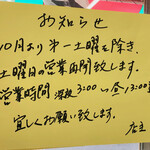 お知らせ
10月より第一土曜を除き、
土曜日の営業再開致します。
営業時間 深夜3:00〜昼13:00
宜しくお願い致します。
店主